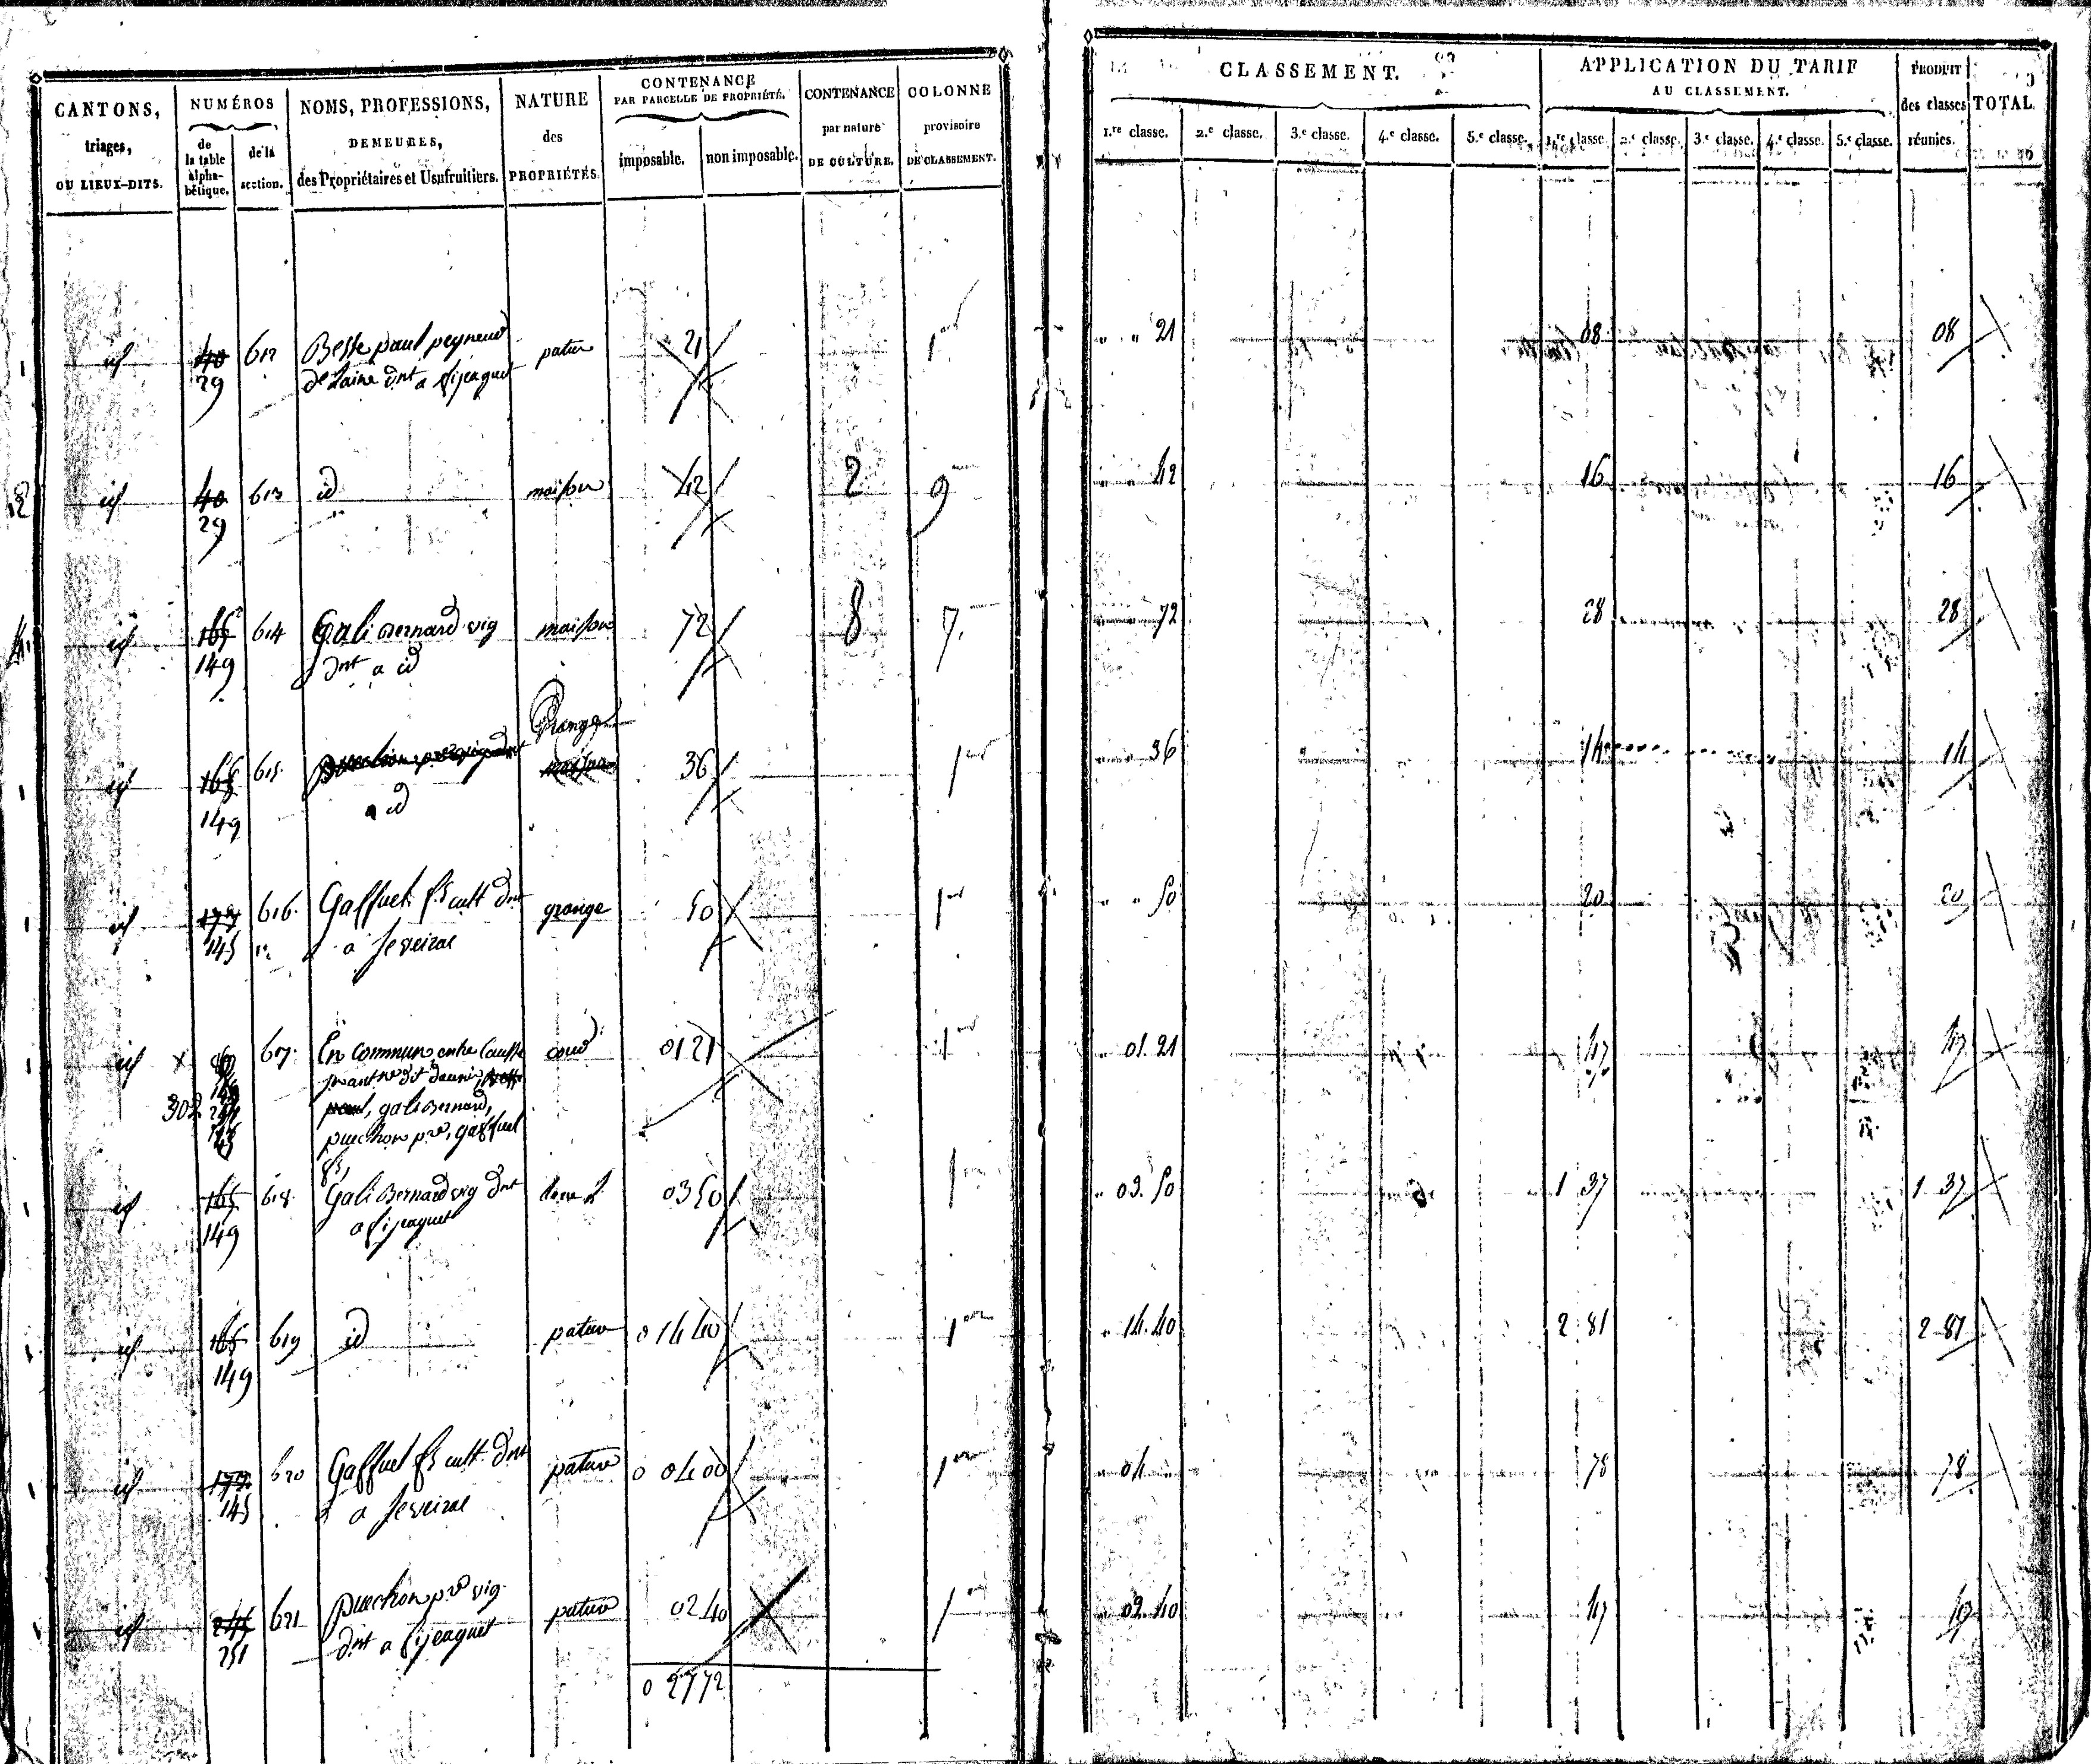 CANTONS,
triages,
OU LIEUX-DITS.
NUMÉROS
de
la table
alpha-
bétique.
de la
section.
NOMS, PROFESSIONS,
DEMEURES,
des Propriétaires et Usufruitiers.
NATURE
des
PROPRIÉTÉS.
CONTENANCE
PAR PARCELLE DE PROPRIÉTÉ.
imposable.
non imposable.
CONTENANCE
par nature
DE CULTURE.
COLONNE
provisoire
DE CLASSEMENT.
CLASSEMENT.
1.re classe.
2.e classe.
3.e classe.
4.e classe.
5.e classe.
APPLICATION DU TARIF
AU CLASSEMENT.
1.re classe.
2.e classe.
3.e classe.
4.e classe.
5.e classe.
PRODUIT
des classes
réunies.
TOTAL.
id 40 612 Besse paul peigneur pature 21 1er 21 08 08
29 de laine dnt a fijeaguet
id 40 613 id maison 42 2 9 42 16 16
29
id 165 614 Gali Bernard vig maison 72 8 7 72 28 28
149 dnt a id
Grange
id 615 maison 36 1er 36 14 14
149 a id
id 177 616 Gaffuel fs cult dnt grange 50 1er 50 20 20
145 a seveirac
id 617 En commun entre Causse cour 0121 1er 01.21 47 47
302 paul, gali Bernard,
puechon pre, gaffuel
fs,
id 165 618 Gali Bernard vig dnt 0350 1er 03.50 1 37 1 37
149 a fijeaguet
id 165 619 id pature 0 14 40 1er 14.40 2 81 2 81
149
id 177 620 Gaffuel fs cult dnt pature 0 04 00 1er 04 78 78
145 a seveirac
id 621 puechon pre vig pature 02 40 1er 02.40 47 47
251 dnt a fijeaguet
0 27 72